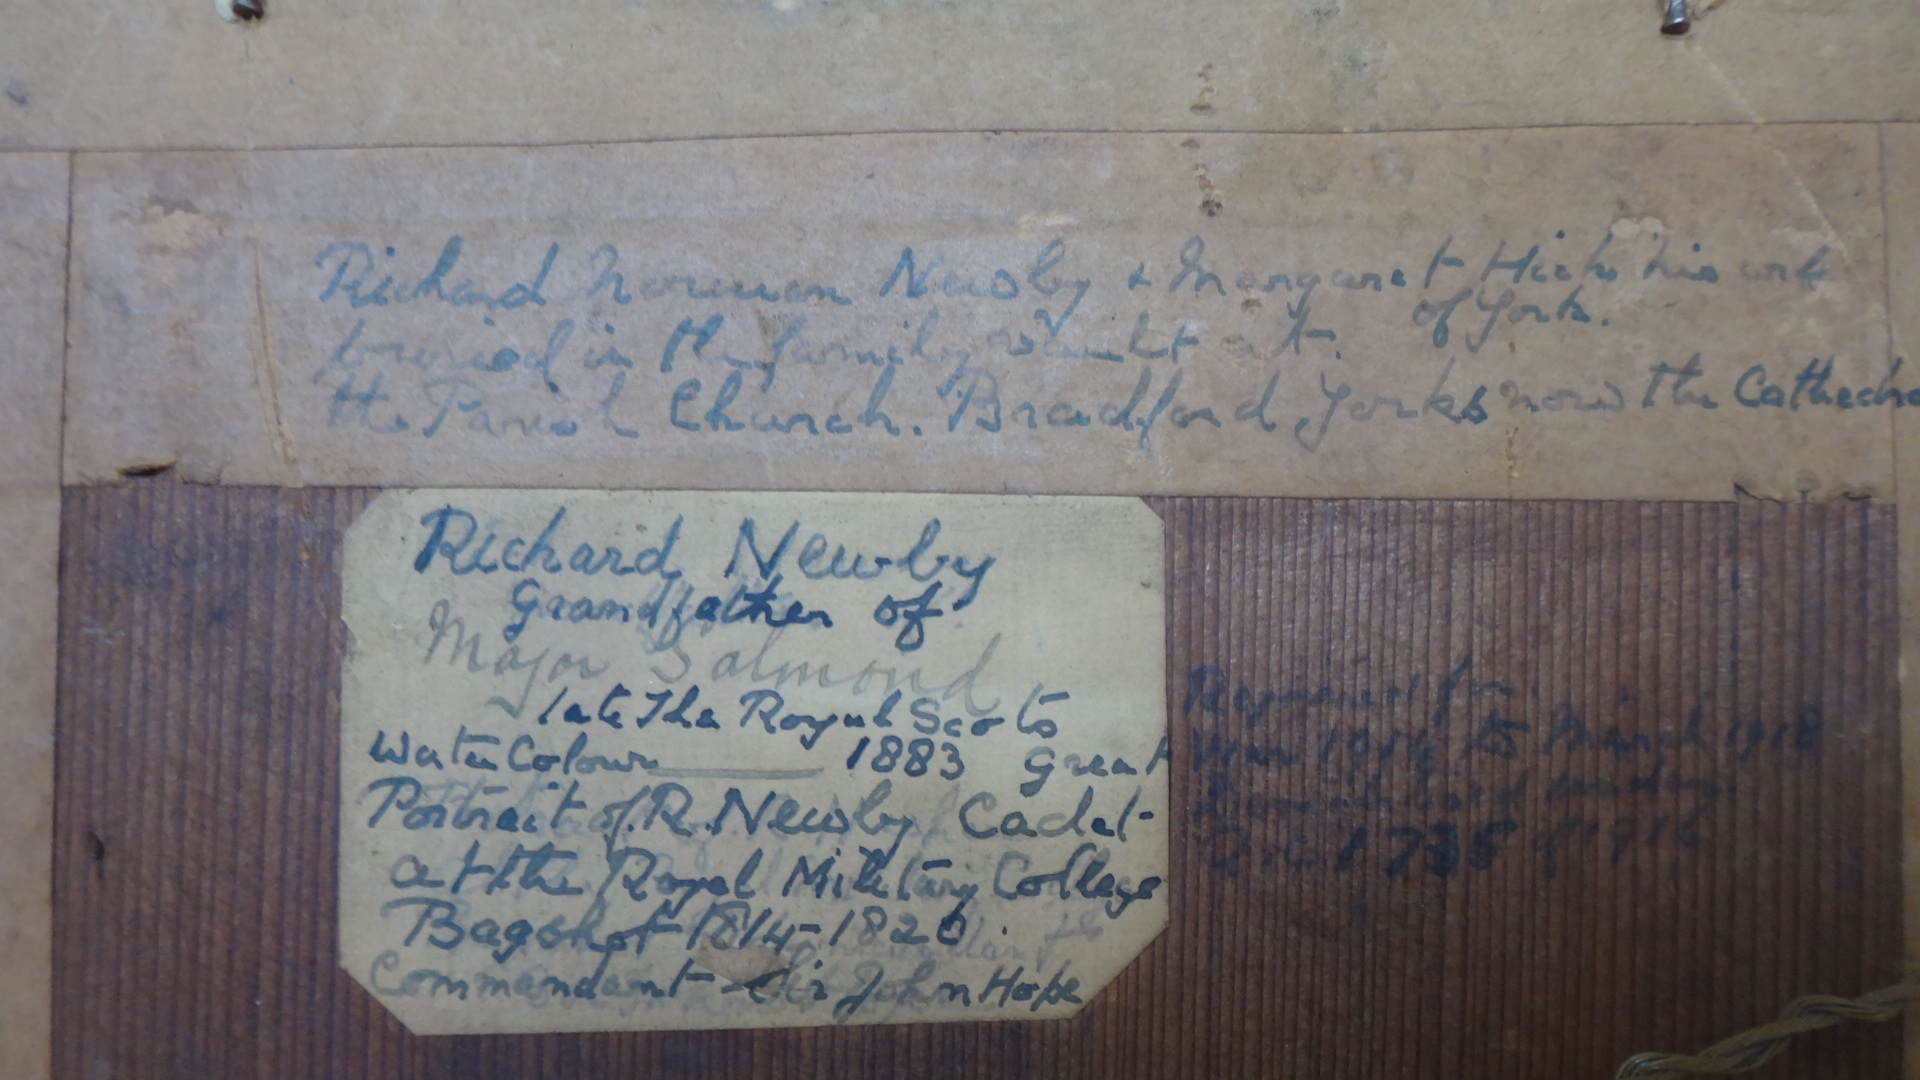 Richard Norman Newby & Margaret Hick his wife
of York.
buried in the family vault at.
the Parish Church. Bradford, Yorks now the Cathedra
Richard Newby
Grandfather of
Major Salmond
late The Royal Scots
Water Colour 1883 Great
Portrait of R. Newby Cadet
at the Royal Military College
Bagshot 1814-1820.
Commandant Sir John Hope
War 1914 to March 1918
1735